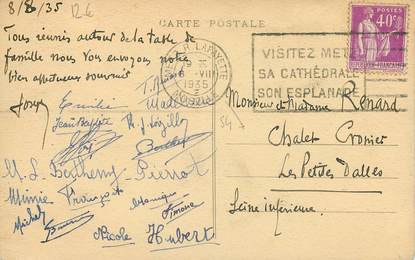 8/8/35
12€
CARTE POSTALE
Tous réunis autour de la table de
famille nous vous envoyons notre
bien affectueux souvenir
R. LAFAYETTE
1935
MOSELLE
VISITEZ METZ
SA CATHÉDRALE
SON ESPLANADE
40c
POSTES
Monsieur et Madame Renard
Chalet Cronier
Les Petites Dalles
Seine inférieure.
Emilie
Jean Baptiste
M. L. Barthemy-Pierrot
Mimie
François
Monique
Simone
Michel
Nicole
Hubert